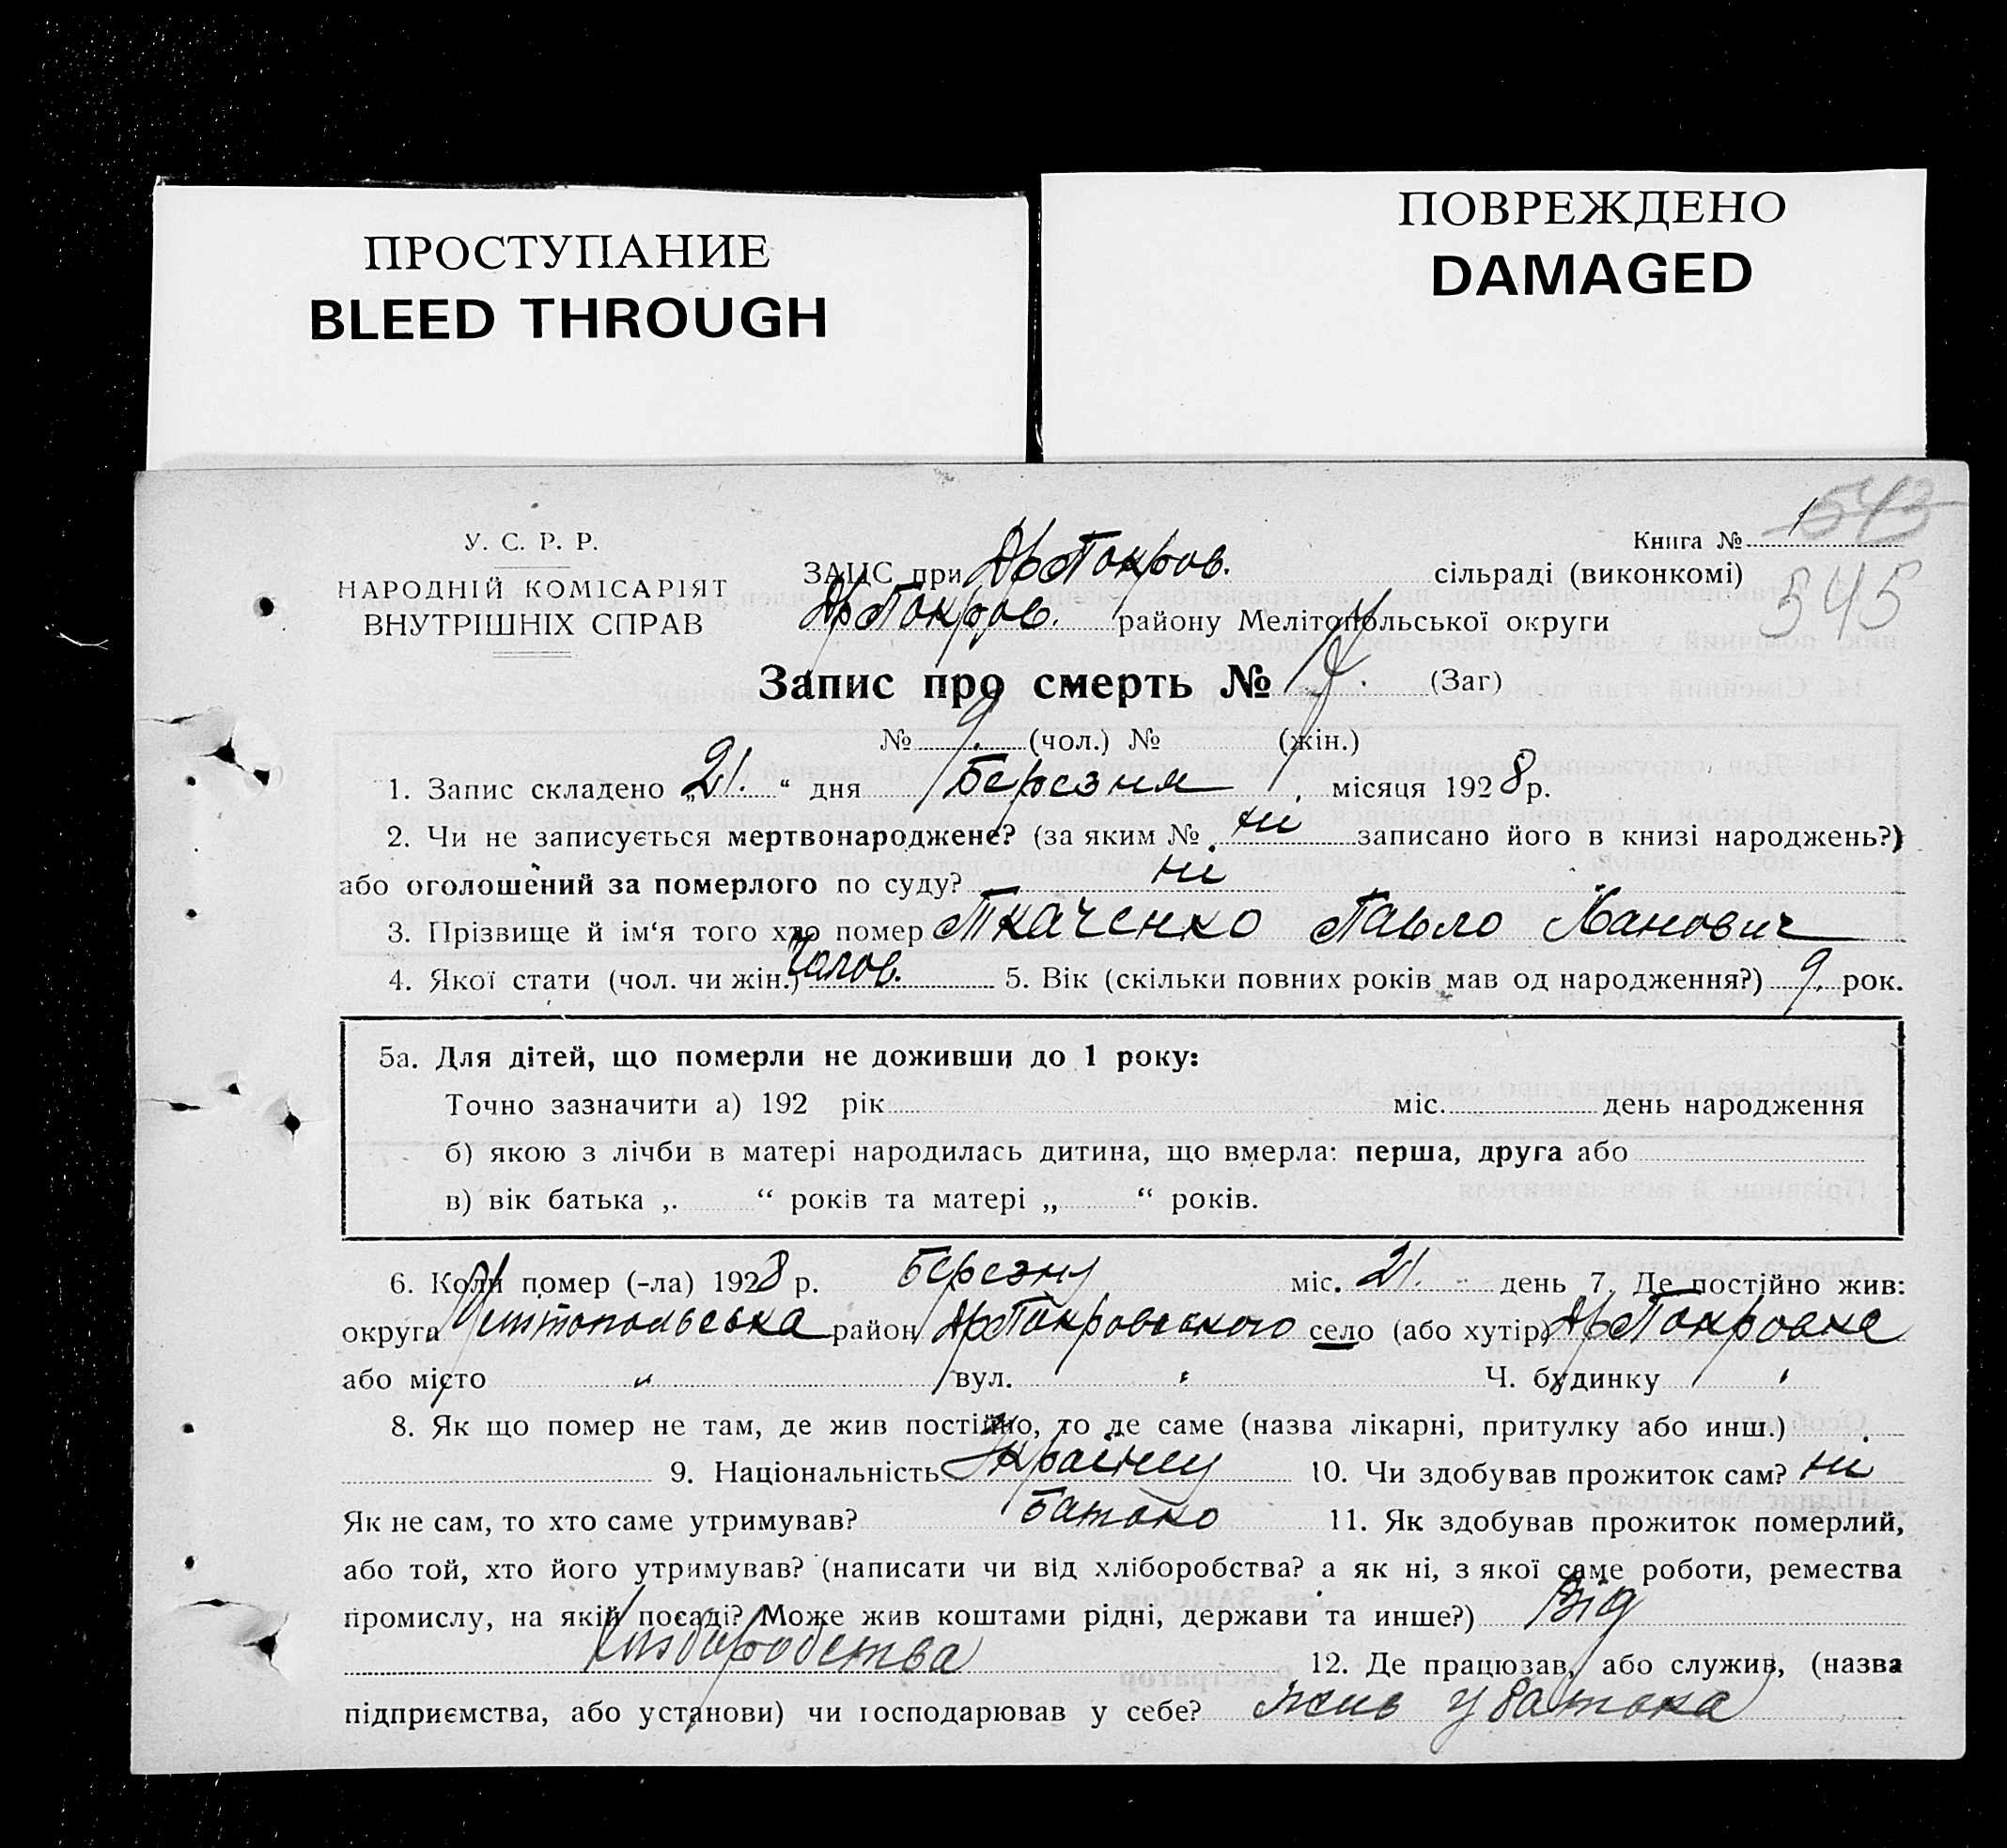 ПРОСТУПАНИЕ
BLEED THROUGH
ПОВРЕЖДЕНО
DAMAGED
Книга № 1
543
545
У. С. Р. Р.
НАРОДНІЙ КОМІСАРІЯТ
ВНУТРІШНІХ СПРАВ
ЗАЦС при Др Покров. сільраді (виконкомі)
Др Покров. району Мелітопольської округи
Запис про смерть № (Заг)
№ 9. (чол.) № (жін.)
1. Запис складено „21.“ дня Березня місяця 1928 р.
2. Чи не записується мертвонароджене? (за яким № ні записано його в книзі народжень?)
або оголошений за померлого по суду? ні
3. Прізвище й ім‘я того хто помер Ткаченко Павло Іванович
4. Якої стати (чол. чи жін.) Чолов. 5. Вік (скільки повних років мав од народження?) 9. рок.
5а. Для дітей, що померли не доживши до 1 року:
Точно зазначити а) 192 рік міс. день народження
б) якою з лічби в матері народилась дитина, що вмерла: перша, друга або
в) вік батька „ “ років та матері „ “ років.
6. Коли помер (-ла) 1928 р. Березня міс. 21. день 7. Де постійно жив:
округа Мелітопольська район Др Покровского село (або хутір) Др Покровка
або місто " вул. " Ч. будинку "
8. Як що помер не там, де жив постійно, то де саме (назва лікарні, притулку або инш.)
9. Національність 10. Чи здобував прожиток сам? ні
Як не сам, то хто саме утримував? Батько 11. Як здобував прожиток померлий,
або той, хто його утримував? (написати чи від хліборобства? а як ні, з якої саме роботи, ремества
промислу, на якій посаді? Може жив коштами рідні, держави та инше?) Від
хліборобства 12. Де працював, або служив, (назва
підприємства, або установи) чи господарював у себе? жив у батька